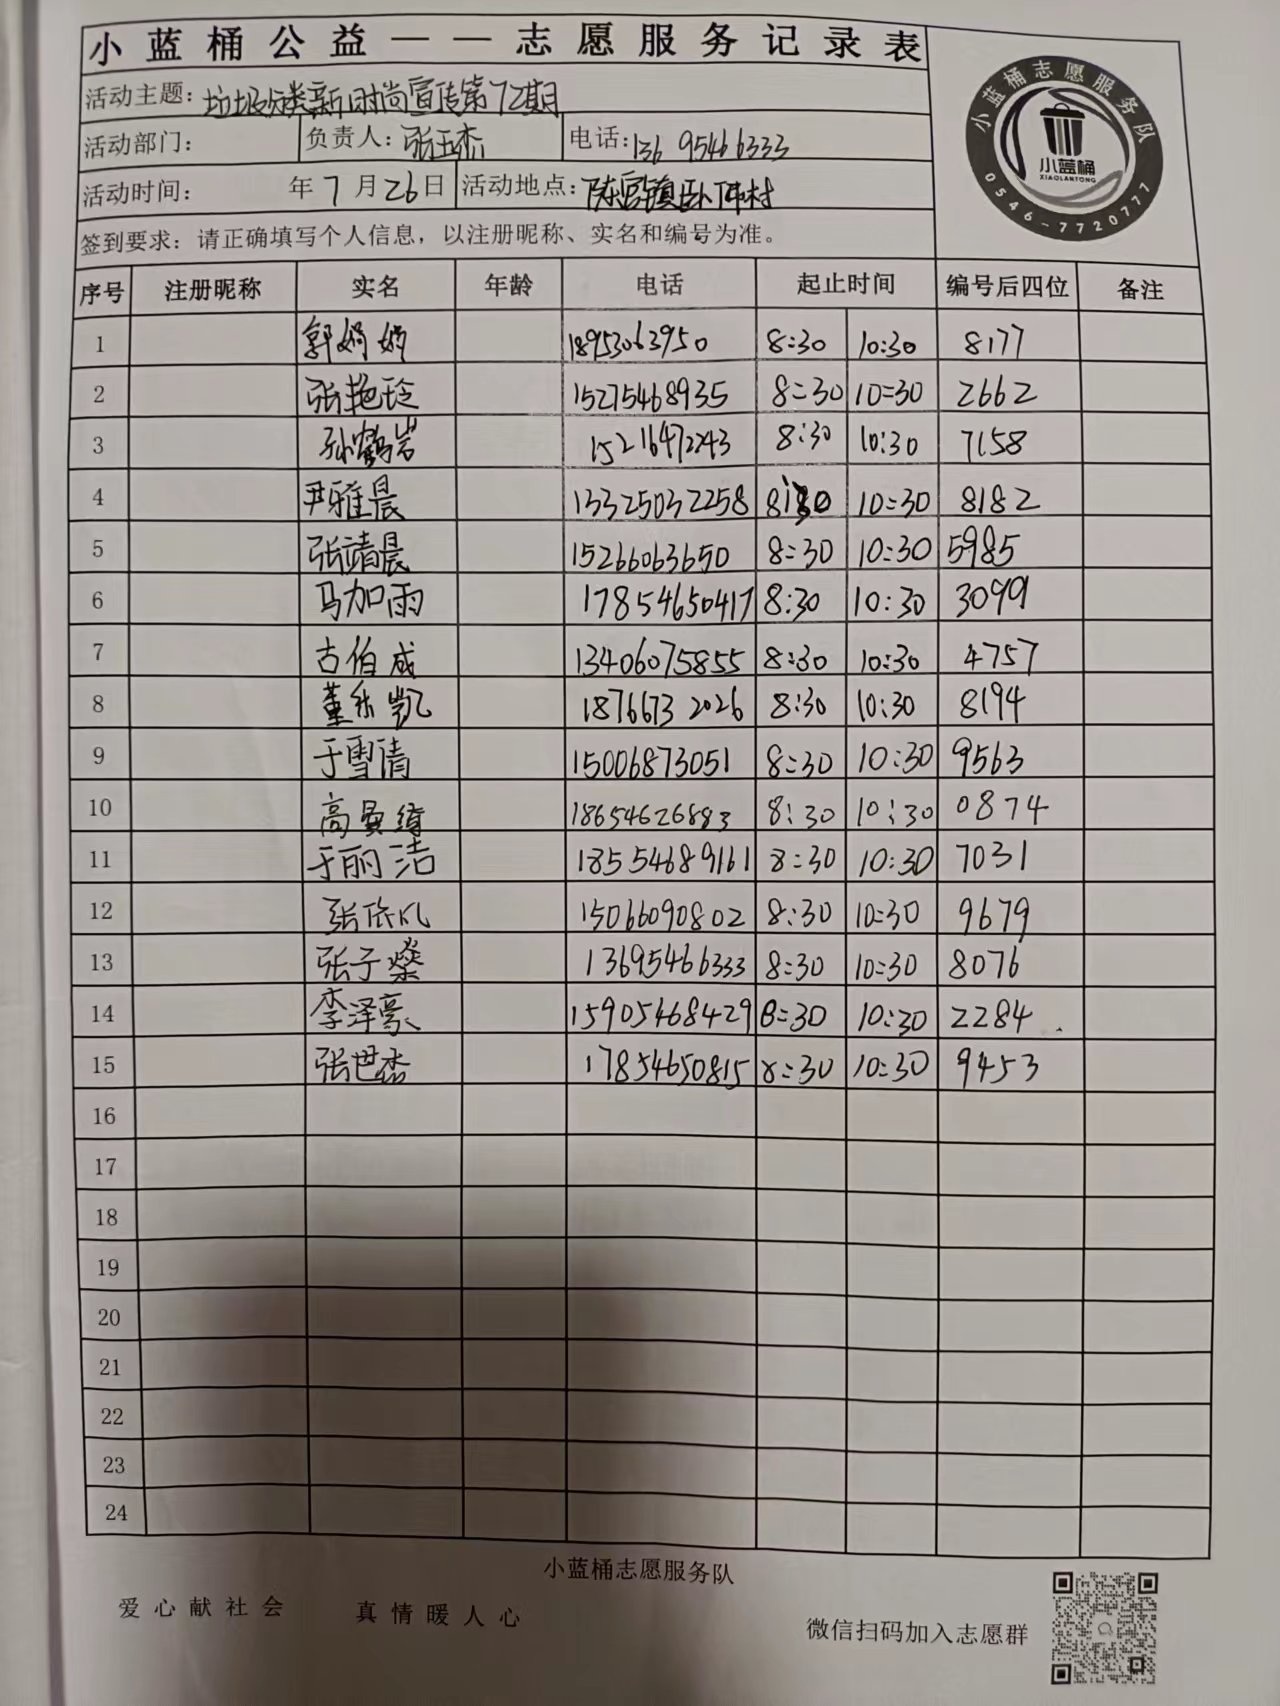 小蓝桶公益——志愿服务记录表
活动主题：垃圾分类新时尚宣传第72期
活动部门： 负责人：张玉杰 电话：136 95466333
活动时间： 年7月26日 活动地点：陈官镇卧佛村
签到要求：请正确填写个人信息，以注册昵称、实名和编号为准。
小蓝桶志愿服务队
小蓝桶
XIAOLANTONG
0546-7720777
序号 注册昵称 实名 年龄 电话 起止时间 编号后四位 备注
1 郭娟娟 18953063950 8:30 10:30 8177
2 张艳玲 15275468935 8:30 10:30 2662
3 孙鹤岩 15216472243 8:30 10:30 7158
4 尹雅晨 13325032258 8:30 10:30 8182
5 张靖晨 15266063650 8:30 10:30 5985
6 马加雨 17854650417 8:30 10:30 3099
7 古伯成 13406075855 8:30 10:30 4757
8 董乐凯 1876673 2026 8:30 10:30 8194
9 于雪清 15006873051 8:30 10:30 9563
10 高曼绮 18654626883 8:30 10:30 0874
11 于丽洁 18554689161 8:30 10:30 7031
12 张依凡 15066090802 8:30 10:30 9679
13 张子燊 13695466333 8:30 10:30 8076
14 李泽豪 15905468429 8:30 10:30 2284
15 张世杰 17854650815 8:30 10:30 9453
16
17
18
19
20
21
22
23
24
小蓝桶志愿服务队
爱心献社会 真情暖人心
微信扫码加入志愿群